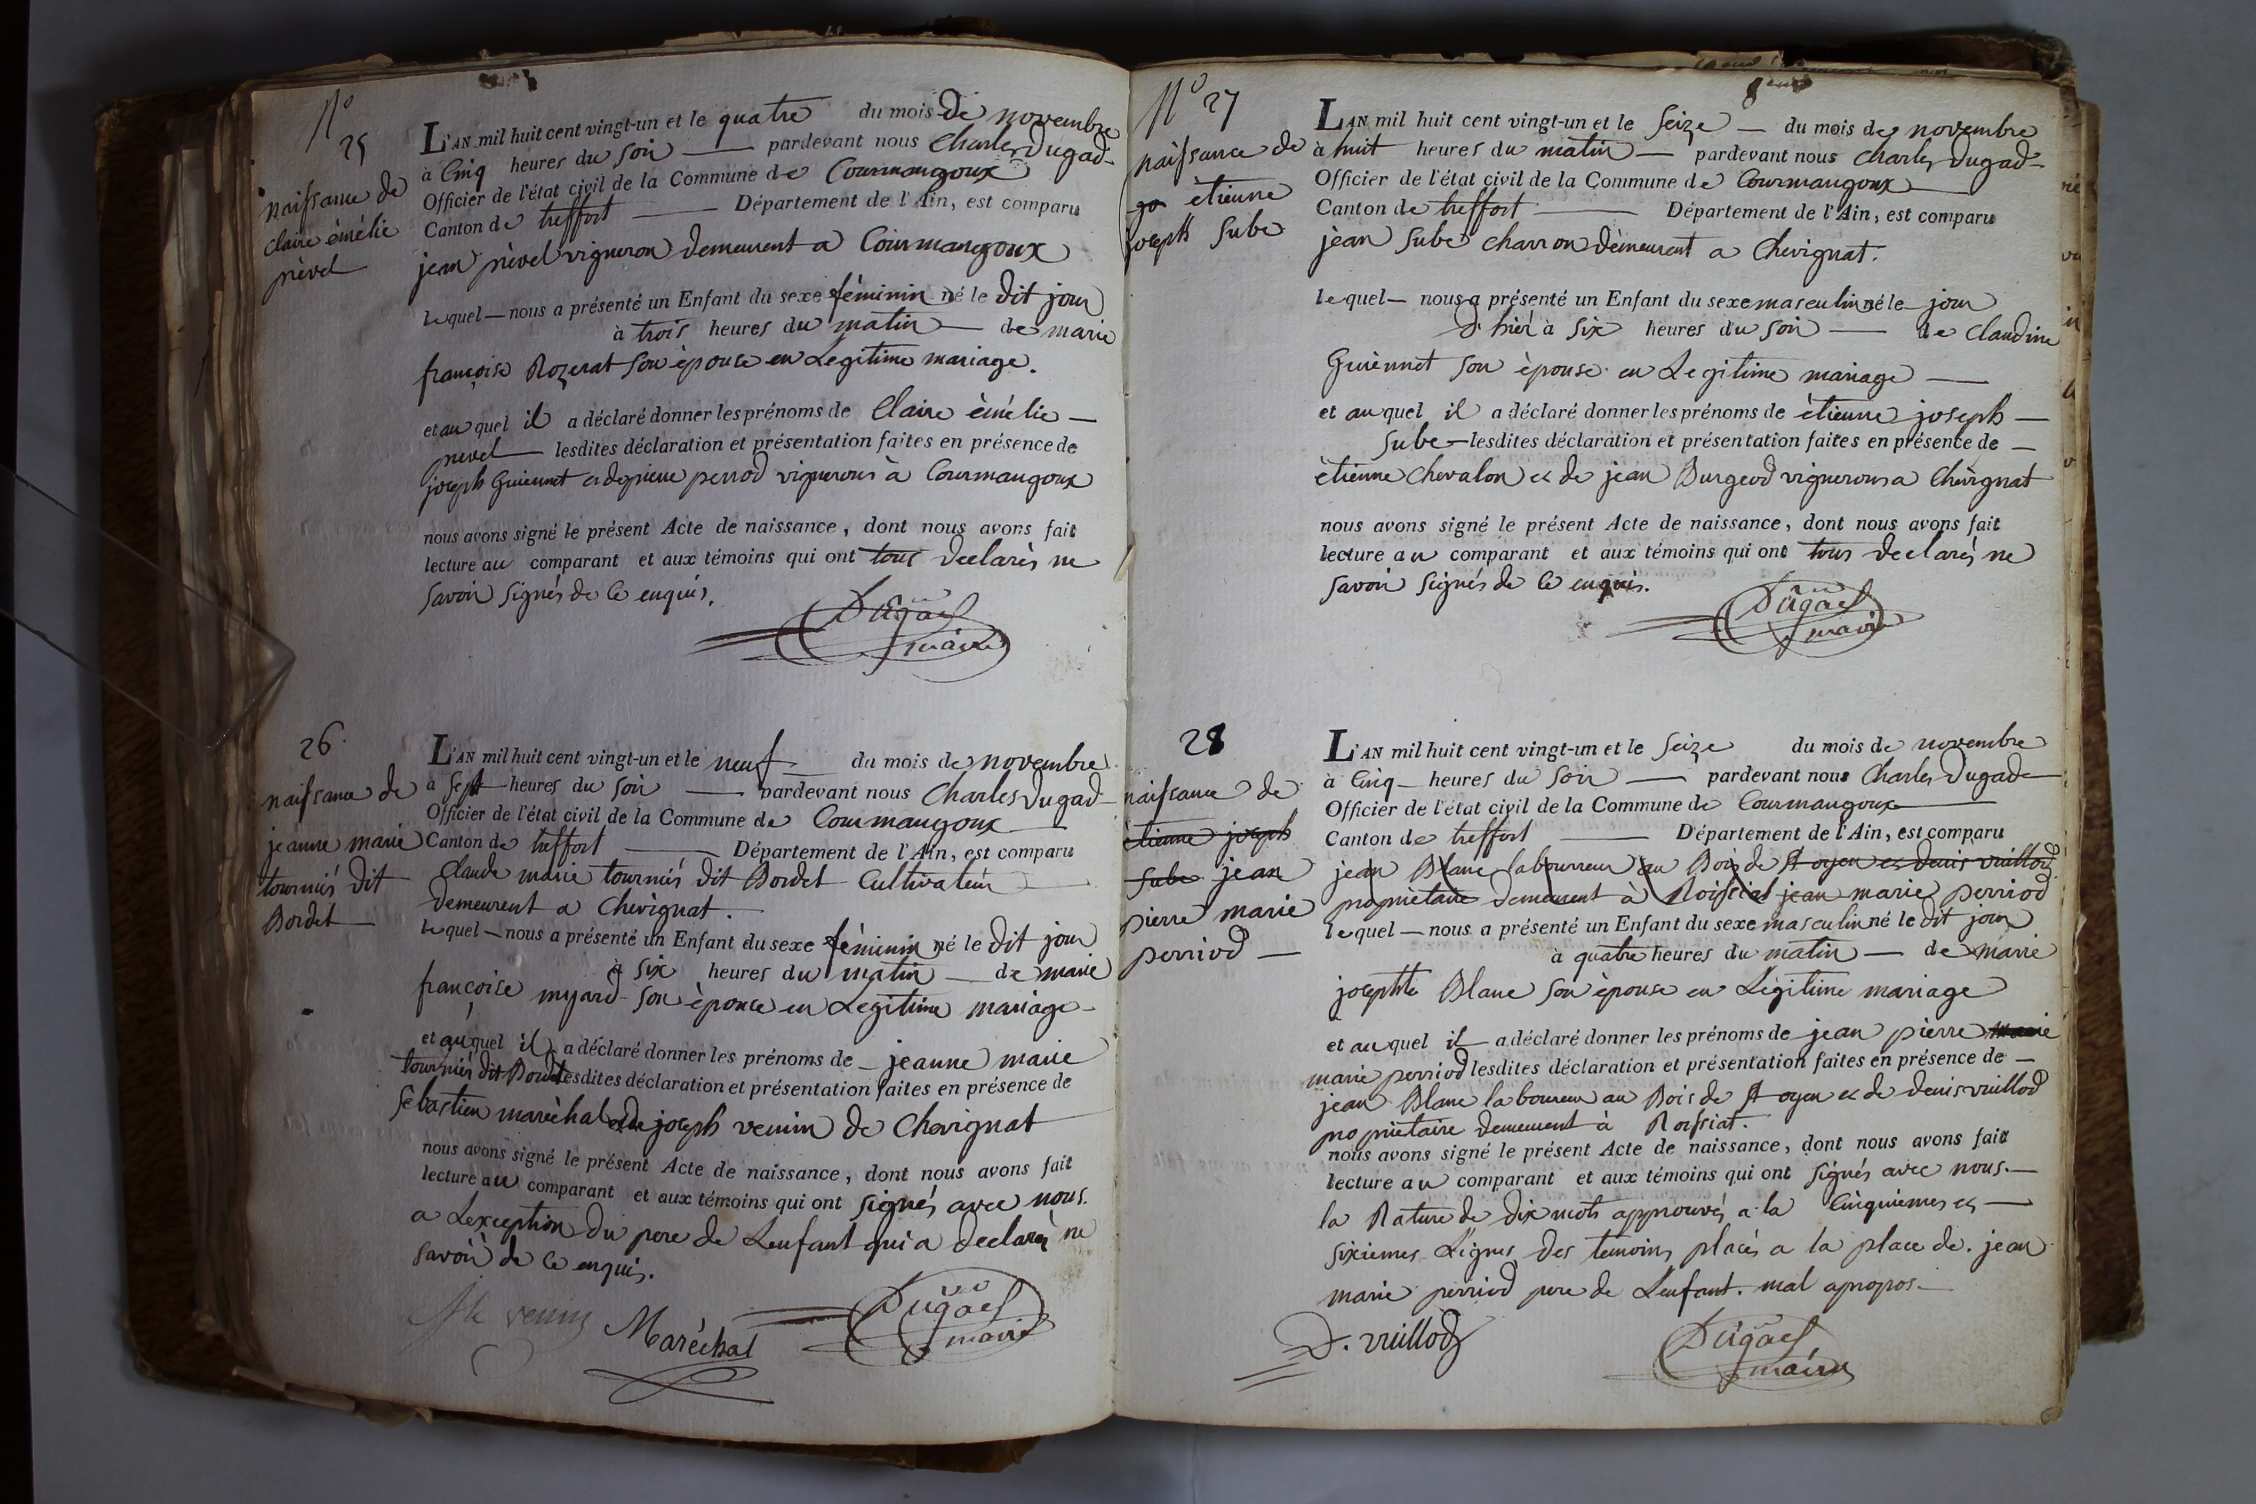 N.o
25
naissance de
claire émélie
prével
L'AN mil huit cent vingt-un et le quatre du mois de novembre
à Cinq heures du soir — pardevant nous Charles Dugad
Officier de l'état civil de la Commune de Courmangoux
Canton de treffort — Département de l'Ain, est comparu
jean prével vigneron demeurent a Courmangoux
lequel — nous a présenté un Enfant du sexe féminin né le dit jour
à trois heures du matin — de marie
françoise Rozerat son épouse en Legitime mariage.
et au quel il a déclaré donner les prénoms de Claire émélie —
prevel — lesdites déclaration et présentation faites en présence de
joseph Guiennet et de pierre perrod vignerons à Courmangoux
nous avons signé le présent Acte de naissance, dont nous avons fait
lecture au comparant et aux témoins qui ont tous declarés ne
savoir signés de ce enquis.
Dugad
maire
26
naissance de
jeanne marie
tournies dit
Bordet
L'AN mil huit cent vingt-un et le neuf du mois de novembre
à sept heures du soir — pardevant nous Charles Dugad
Officier de l'état civil de la Commune de Courmangoux
Canton de treffort — Département de l'Ain, est comparu
Claude marie tournies dit Bordet Cultivateur
demeurent a Chevignat.
lequel — nous a présenté un Enfant du sexe féminin né le dit jour
à six heures du matin — de marie
françoise myard son épouse en Legitime mariage
et au quel il a déclaré donner les prénoms de jeanne marie
tournies dit Bordet lesdites déclaration et présentation faites en présence de
Sébastien maréchal et de joseph vennin de Chevignat
nous avons signé le présent Acte de naissance, dont nous avons fait
lecture au comparant et aux témoins qui ont signés avec nous.
a Lexception du pere de Lenfant qui a declaré ne
savoir de ce enquis.
Maréchal
Dugad
maire
N.o 27
naissance de
étienne
joseph Sube
L'AN mil huit cent vingt-un et le Seize — du mois de novembre
à huit heures du matin — pardevant nous Charles Dugad
Officier de l'état civil de la Commune de Courmangoux
Canton de treffort — Département de l'Ain, est comparu
jean Sube charron demeurent a Chevignat.
lequel — nous a présenté un Enfant du sexe masculin né le jour
d'hier à six heures du soir — de Claudine
Guiennet son épouse en Legitime mariage —
et au quel il a déclaré donner les prénoms de étienne joseph —
Sube — lesdites déclaration et présentation faites en présence de —
étienne Chevalon et de jean Burgeod vignerons a Chevignat
nous avons signé le présent Acte de naissance, dont nous avons fait
lecture au comparant et aux témoins qui ont tous declarés ne
savoir signés de ce enquis.
Dugad
maire
28
naissance de
étienne joseph
Sube jean
pierre marie
perriod —
L'AN mil huit cent vingt-un et le Seize du mois de novembre
à Cinq heures du soir — pardevant nous Charles Dugad
Officier de l'état civil de la Commune de Courmangoux
Canton de treffort — Département de l'Ain, est comparu
jean Blanc labourreur au Bois de St oyen et denis vuillod
propriétaire demeurent à Roissiat jean marie perriod
lequel — nous a présenté un Enfant du sexe masculin né le dit jour
à quatre heures du matin — de marie
josephte Blanc son épouse en Légitime mariage
et au quel il a déclaré donner les prénoms de jean pierre marie
marie perriod lesdites déclaration et présentation faites en présence de —
jean Blanc laboureur au Bois de St oyen et de denis vuillod
propriétaire demeurent à Roissiat.
nous avons signé le présent Acte de naissance, dont nous avons fait
lecture au comparant et aux témoins qui ont signés avec nous. —
la Rature de dix mots approuvés a la Cinquiemes et —
sixiemes Lignes des temoins placés a la place de jean
marie perriod pere de Lenfant. mal apropos. —
D. vuillod
Dugad
maire